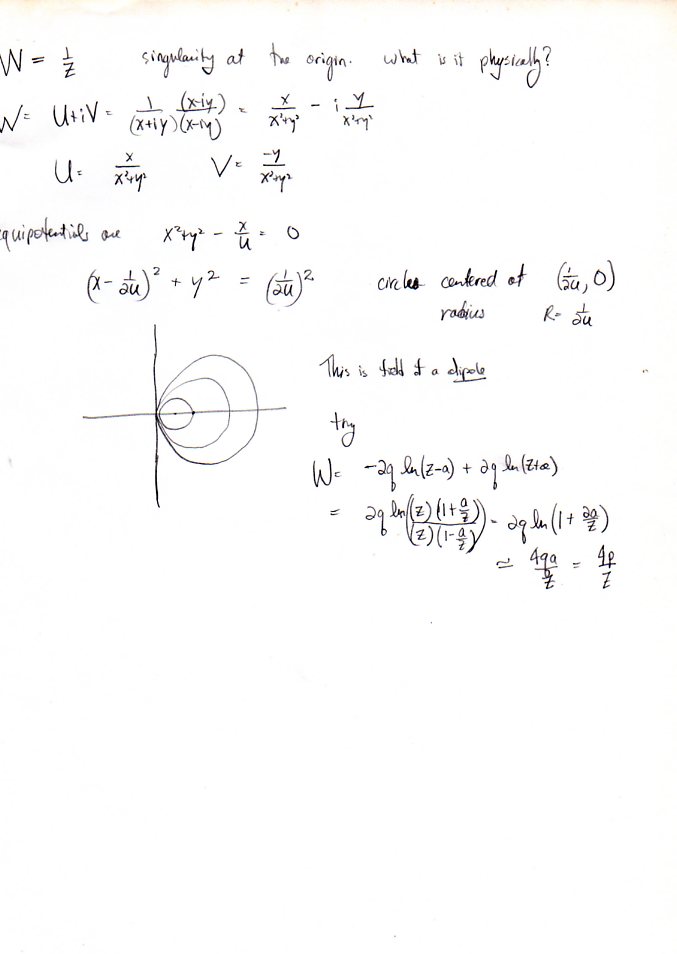 W = 1/z singularity at the origin. What is it physically?
W = U+iV = 1/(x+iy) (x-iy)/(x-iy) = x/(x²+y²) - i y/(x²+y²)
U = x/(x²+y²) V = -y/(x²+y²)
quipotentials are x²+y² - x/u = 0
(x - 1/2u)² + y² = (1/2u)² circles centered at (1/2u, 0)
radius R = 1/2u
This is field of a dipole
try
W = -2q ln(z-a) + 2q ln(z+a)
= 2q ln((z)(1+a/z)/(z)(1-a/z)) = 2q ln(1 + 2a/z)
≃ 4qa/z = 4p/z